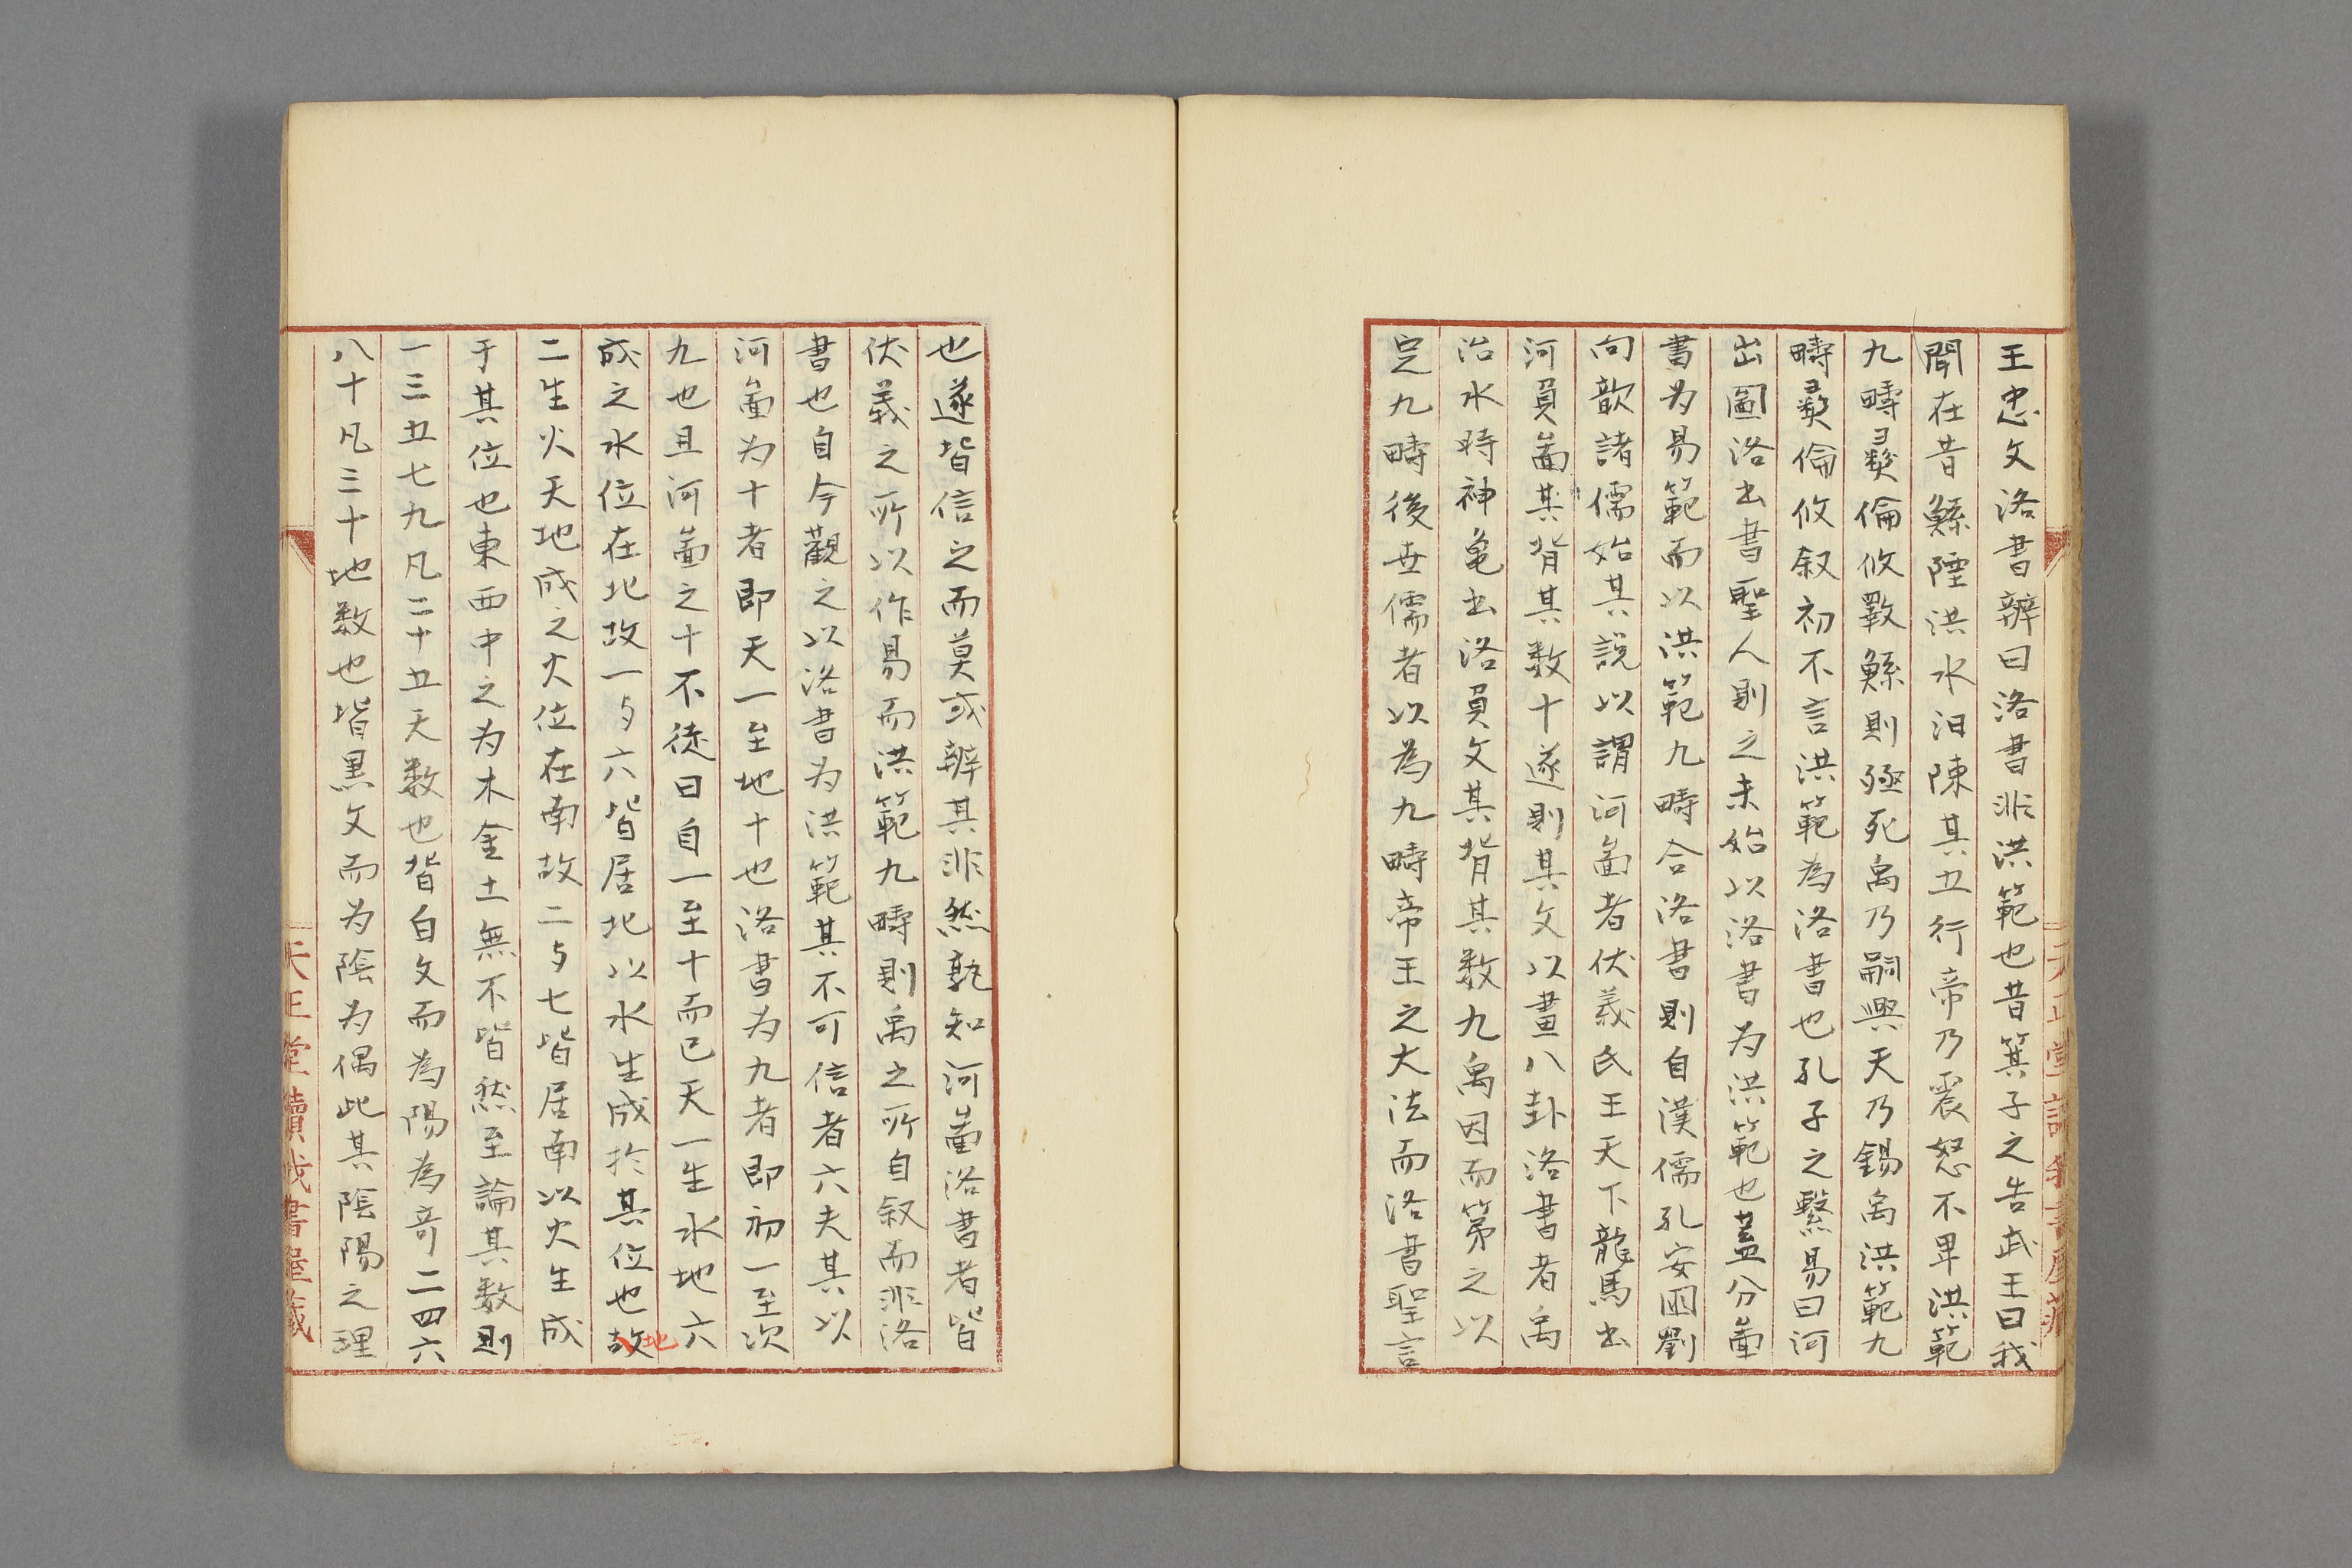 王忠文洛書辨曰洛書非洪範也昔箕子之告武王曰我
聞在昔鯀陻洪水汨陳其五行帝乃震怒不畀洪範
九疇彝倫攸斁鯀則殛死禹乃嗣興天乃錫禹洪範九
疇彝倫攸叙初不言洪範為洛書也孔子之繫易曰河
出圖洛出書聖人則之未始以洛書为洪範也蓋分啚
書为易範而以洪範九疇合洛書則自漢儒孔安國劉
向歆諸儒始其説以謂河啚者伏義氏王天下龍馬出
河負啚其背其数十遂則其文以畫八卦洛書者禹
治水時神亀出洛負文其背其数九禹因而第之以
定九疇後世儒者以為九疇帝王之大法而洛書聖言
也遂皆信之而莫或辨其非然孰知河啚洛書者皆
伏義之所以作易而洪範九疇則禹之所自叙而非洛
書也自今觀之以洛書为洪範其不可信者六夫其以
河啚为十者即天一至地十也洛書为九者即初一至次
九也且河啚之十不徒曰自一至十而已天一生水地六
成之水位在北故一与六皆居北以水生成於其位也故地
二生火天地成之火位在南故二与七皆居南以火生成
于其位也東西中之为木金土無不皆然至論其数則
一三五七九凡二十五天数也皆白文而為陽為竒二四六
八十凡三十地数也皆黒文而为陰为偶此其陰陽之理
天正堂讀我書屋藏